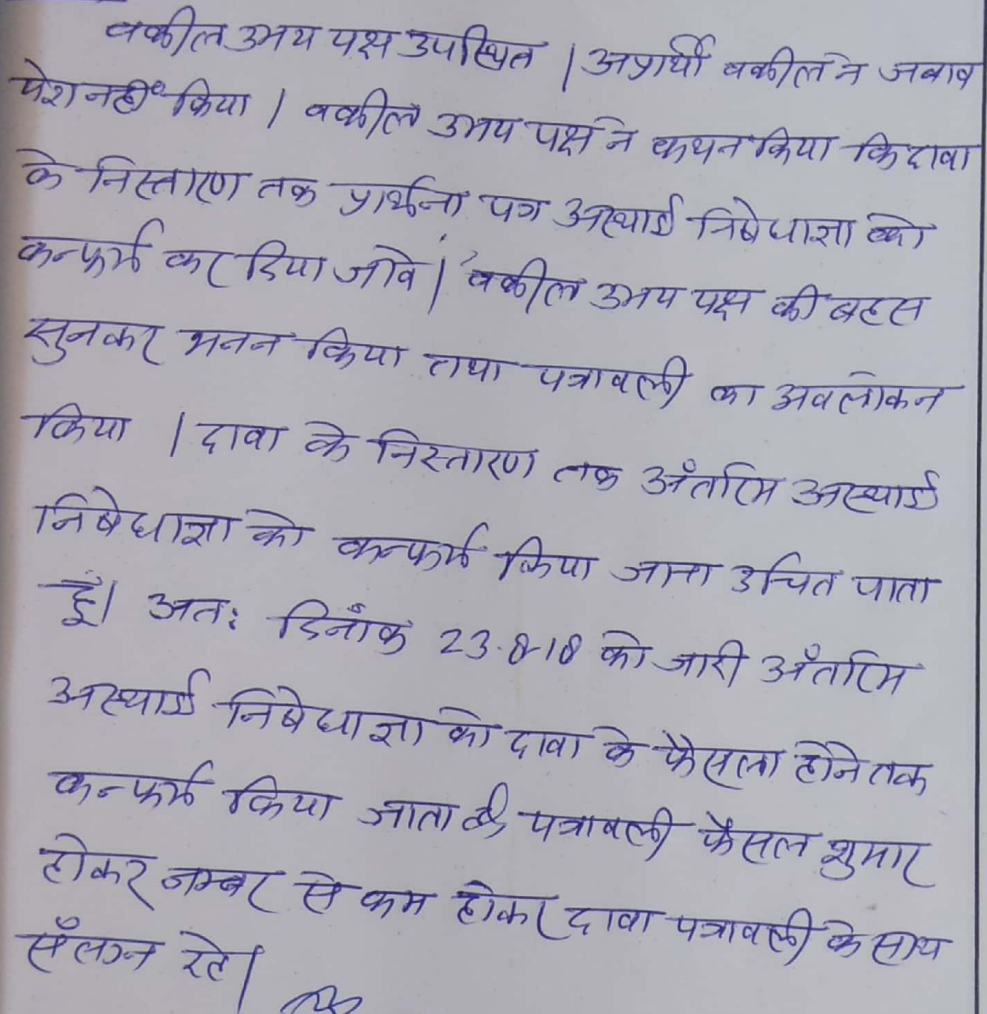 वकील उभय पक्ष उपस्थित । अप्रार्थी वकील ने जवाब
पेश नहीं किया । वकील उभय पक्ष ने कथन किया कि दावा
के निस्तारण तक प्रार्थना पत्र अस्थाई निषेधाज्ञा को
कन्फर्म कर दिया जावे । वकील उभय पक्ष की बहस
सुनकर मनन किया तथा पत्रावली का अवलोकन
किया । दावा के निस्तारण तक अँतरिम अस्थाई
निषेधाज्ञा को कन्फर्म किया जाना उचित पाता
हूँ। अतः दिनाँक 23.8.18 को जारी अँतरिम
अस्थाई निषेधाज्ञा को दावा के फैसला होने तक
कन्फर्म किया जाता है, पत्रावली फैसल शुमार
होकर नम्बर से कम होकर दावा पत्रावली के साथ
सँलग्न रहे।